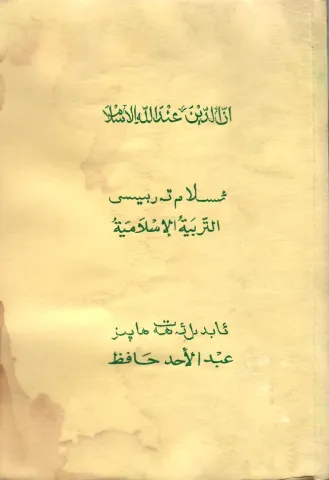 ان الدين عند الله الاسلام
ئىسلام تەربىيىسى
التربية الإسلامية
ئابدۇلئەھەت ھاپىز
عبد الأحد حافظ